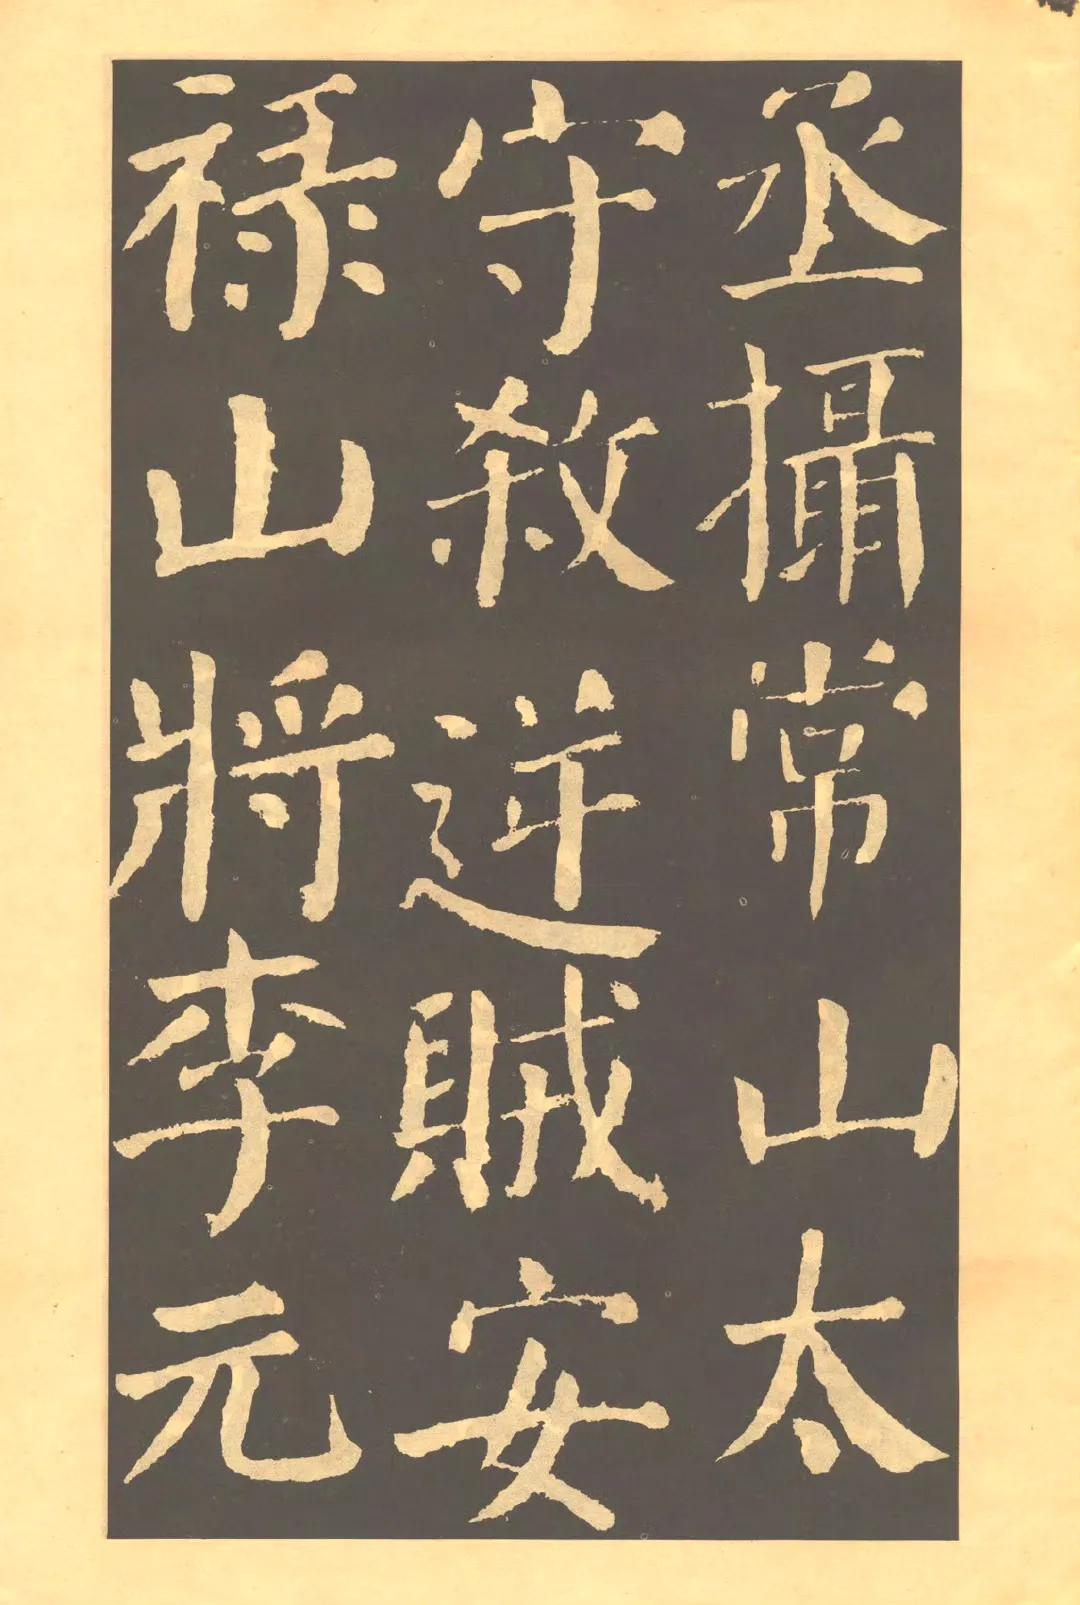 丞攝常山太
守殺逆賊安
禄山將李元